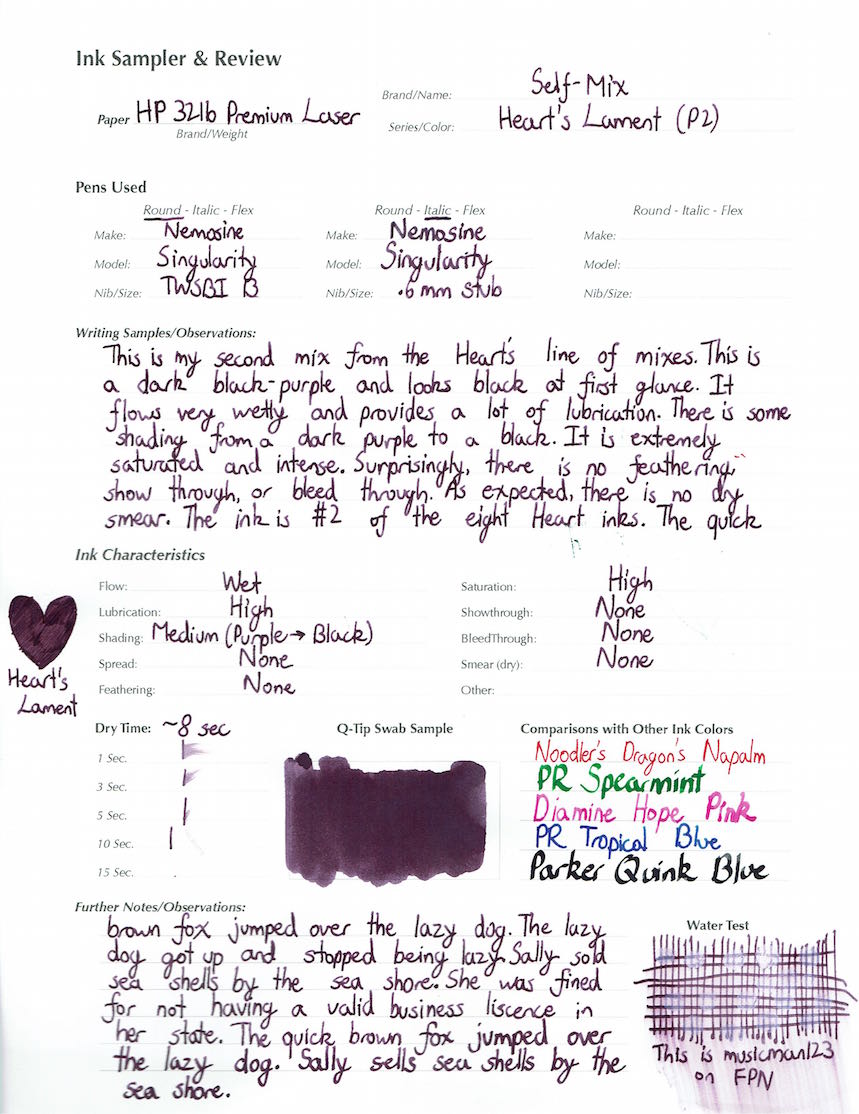 Ink Sampler & Review
Paper HP 32lb Premium Laser
Brand/Weight
Brand/Name: Self-Mix
Series/Color: Heart's Lament (P2)
Pens Used
Round - Italic - Flex
Make: Nemosine
Model: Singularity
Nib/Size: TWSBI B
Round - Italic - Flex
Make: Nemosine
Model: Singularity
Nib/Size: .6 mm Stub
Round - Italic - Flex
Make:
Model:
Nib/Size:
Writing Samples/Observations:
This is my second mix from the Heart's line of mixes. This is
a dark black-purple and looks black at first glance. It
flows very wetly and provides a lot of lubrication. There is some
shading from a dark purple to a black. It is extremely
saturated and intense. Surprisingly, there is no feathering,
show through, or bleed through. As expected, there is no dry
smear. The ink is #2 of the eight Heart inks. The quick
Ink Characteristics
Flow: Wet
Lubrication: High
Shading: Medium (Purple → Black)
Spread: None
Feathering: None
Saturation: High
Showthrough: None
BleedThrough: None
Smear (dry): None
Other:
Heart's
Lament
Dry Time: ~8 sec
1 Sec.
3 Sec.
5 Sec.
10 Sec.
15 Sec.
Q-Tip Swab Sample
Comparisons with Other Ink Colors
Noodler's Dragon's Napalm
PR Spearmint
Diamine Hope Pink
PR Tropical Blue
Parker Quink Blue
Further Notes/Observations:
brown fox jumped over the lazy dog. The lazy
dog got up and stopped being lazy. Sally sold
sea shells by the sea shore. She was fined
for not having a valid business liscence in
her state. The quick brown fox jumped over
the lazy dog. Sally sells sea shells by the
sea shore.
Water Test
This is musicman123
on FPN